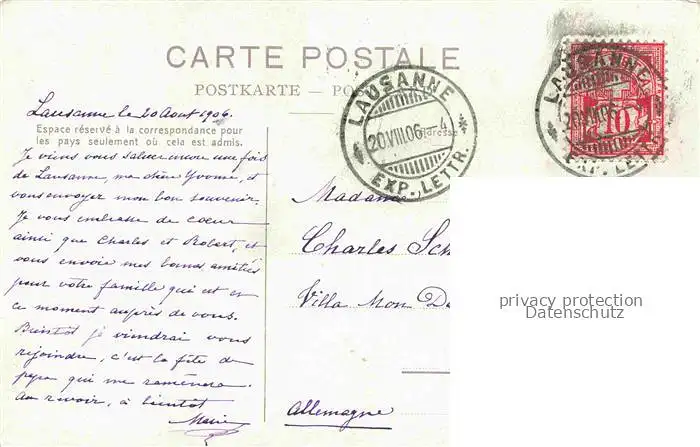 CARTE POSTALE
POSTKARTE — PO
Lausanne le 20 Aout 1906.
Espace réservé à la correspondance pour
les pays seulement où cela est admis.
Adresse
LAUSANNE
20.VIII.06 - 4
EXP. LETTR.
LAUSANNE
20.VIII.06
EXP. LETTR.
10
Je viens vous saluer encore une fois
de Lausanne, ma chère Yvonne, et
vous envoyer mon bon souvenir.
Je vous embrasse de cœur
ainsi que Charles et Robert, et
vous envoie mes bonnes amitiés
pour votre famille qui est en
ce moment auprès de vous.
Bientôt je viendrai vous
rejoindre, c'est la fête de
papa qui me ramènera.
Au revoir, à bientôt
Marie
Madame
Charles Sch
Villa Mon De
Allemagne
privacy protection
Datenschutz